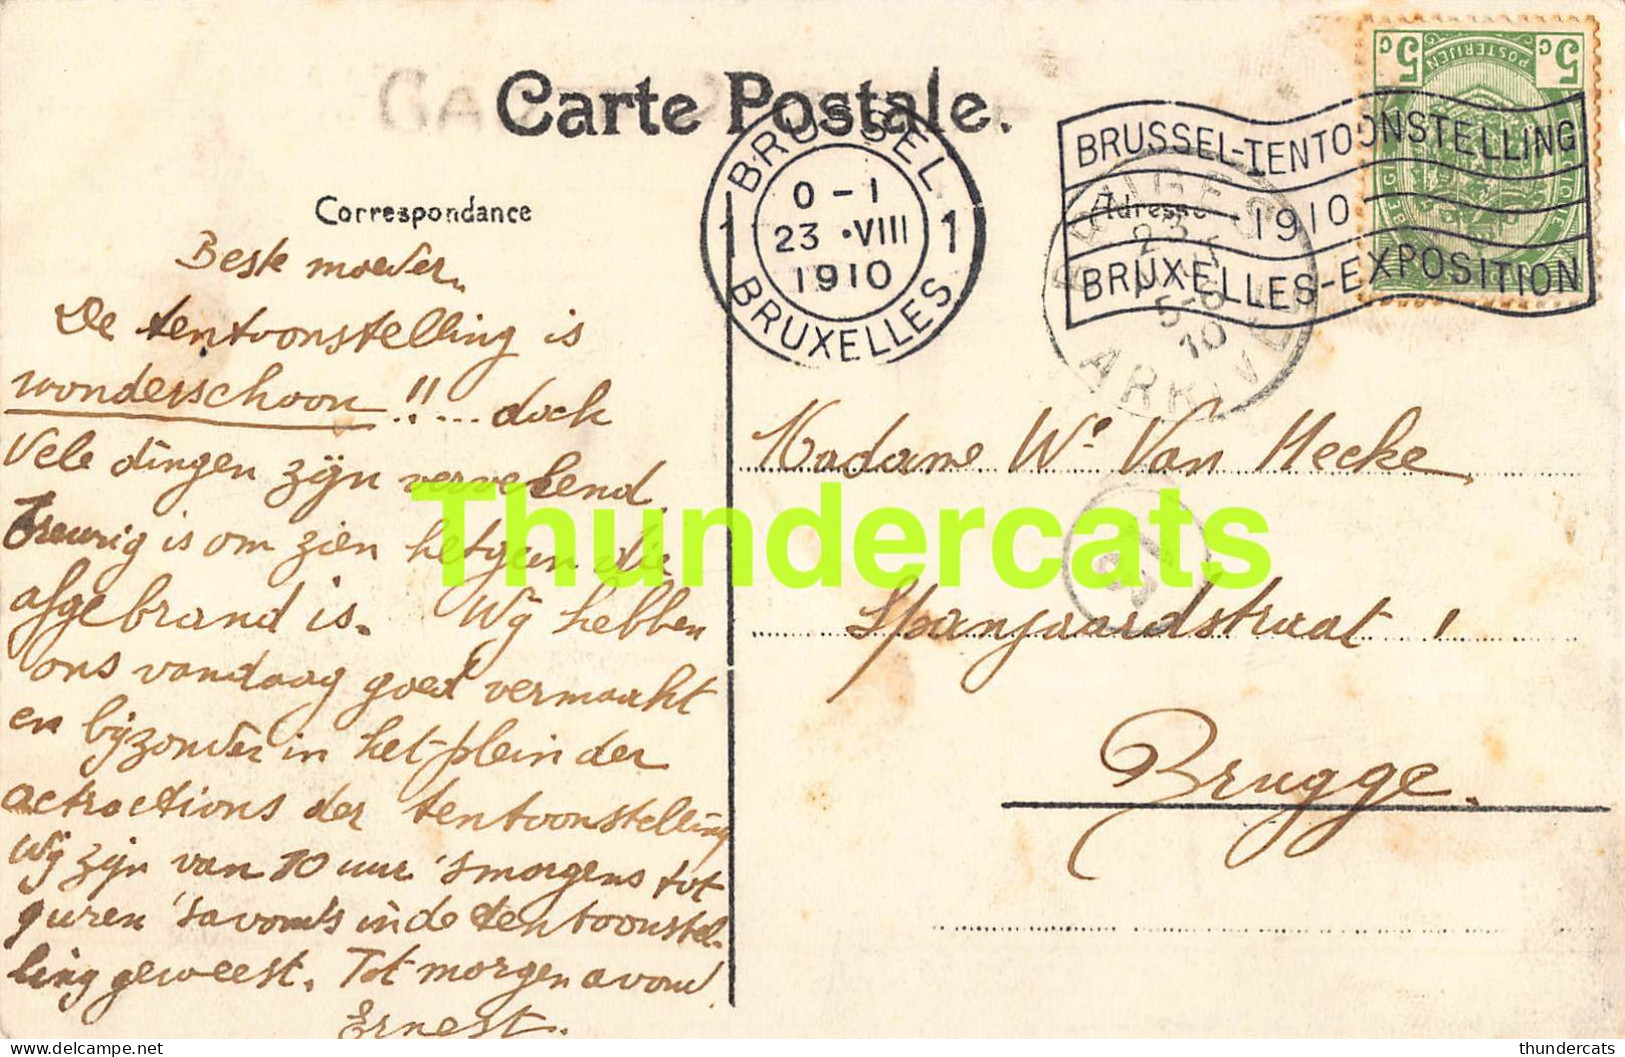 Carte Postale.
Correspondance
Adresse
BRUSSEL
1 1
0 - 1
23 • VIII
1910
BRUXELLES
BRUSSEL-TENTOONSTELLING
1910
BRUXELLES-EXPOSITION
5c 5c
POSTERIJEN
BRUGES
23
5-6
10
ARRIVÉE
Beste moeder.
De tentoonstelling is
wonderschoon !!... doch
Vele dingen zijn vervelend.
Treurig is om zien hetgeen die
afgebrand is. Wij hebben
ons vandaag goed vermaakt
en bijzonder in het plein der
attractions der tentoonstelling
Wij zijn van 10 uur 's morgens tot
9 uren 's avonds in de tentoonstel-
ling geweest. Tot morgen avond.
Ernest.
Madame We Van Hecke
Spanjaardstraat 1
Brugge.
Thundercats
thundercats
Thundercats